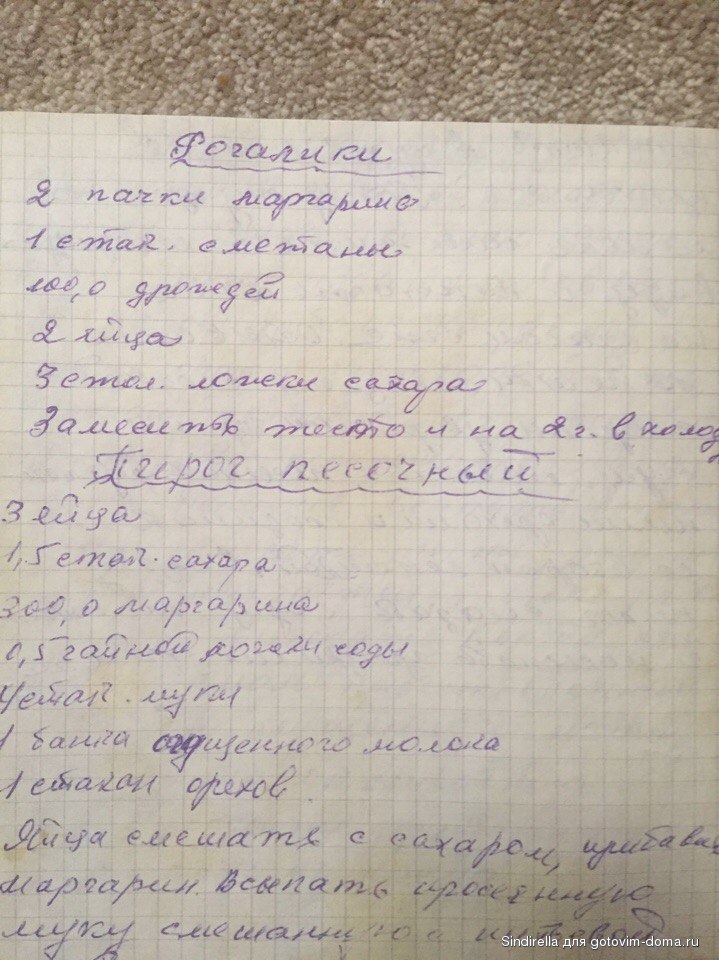 Рогалики
2 пачки маргарина
1 стак. сметаны
100,0 дрожжей
2 яйца
3 стол. ложки сахара
Замесить тесто и на 2 г. в холод
Пирог песочный
3 яйца
1,5 стак. сахара
300,0 маргарина
0,5 чайной ложки соды
4 стак. муки
1 банка сгущенного молока
1 стакан орехов.
Яйца смешать с сахаром, прибави
маргарин. Всыпать просеянную
муку смешанную с
Sindirella для gotovim-doma.ru